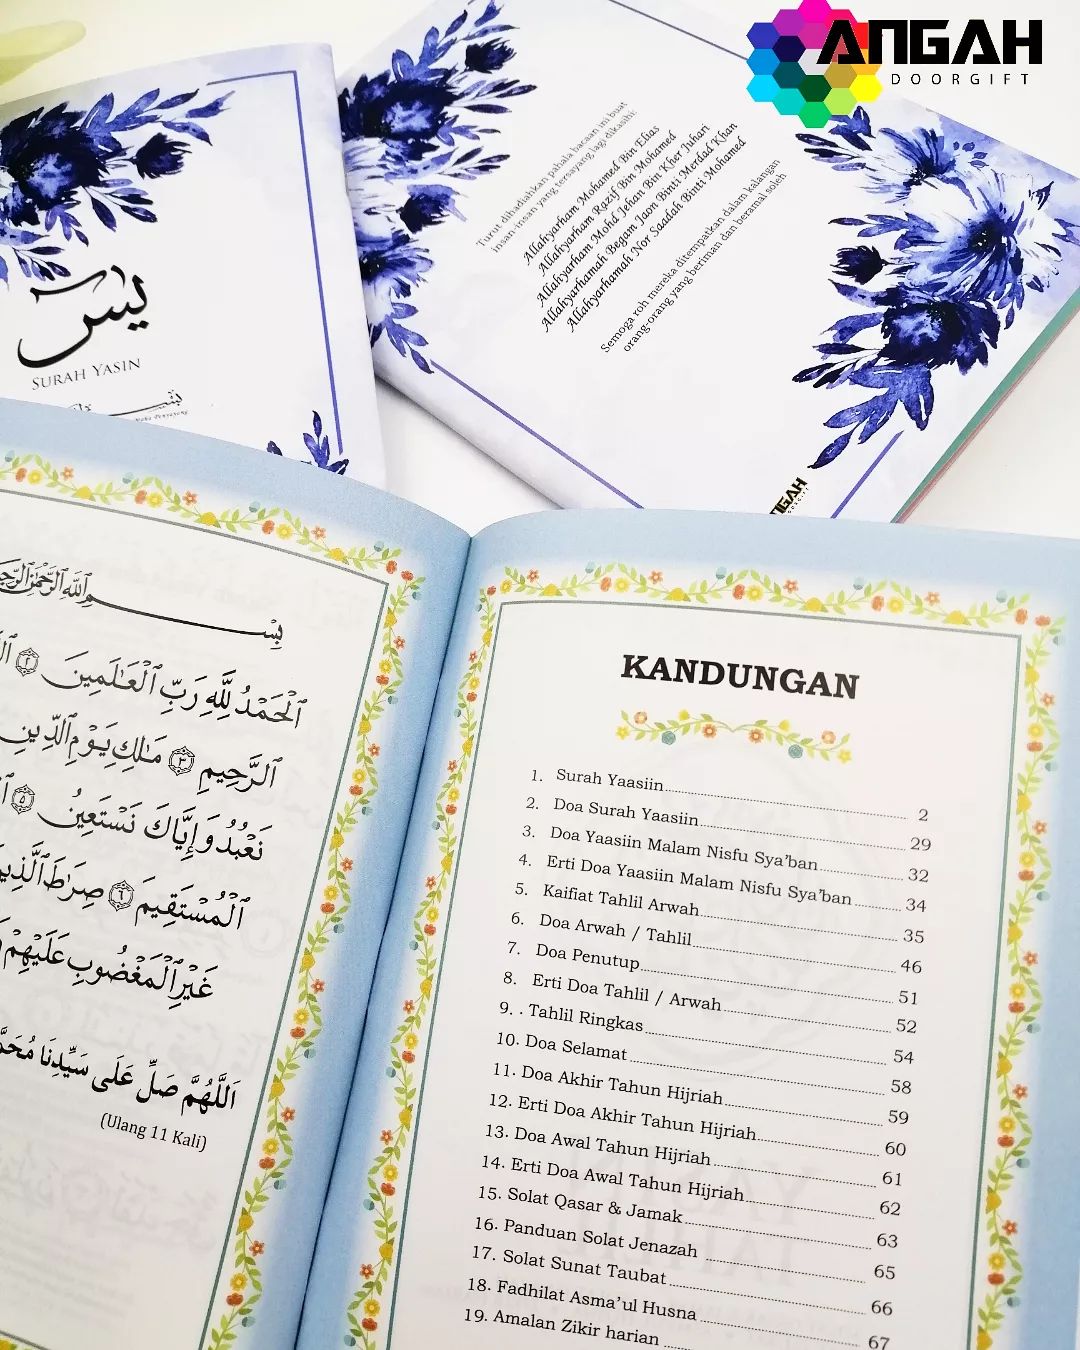 ANGAH
DOORGIFT
Turut dihadiahkan pahala bacaan ini buat
insan-insan yang tersayang lagi dikasihi:
Allahyarham Mohamed Bin Elias
Allahyarham Razif Bin Mohamed
Allahyarham Mohd Jehan Bin Kher Juhari
Allahyarhamah Begam Jaon Binti Merdad Khan
Allahyarhamah Nor Saadah Binti Mohamed
Semoga roh mereka ditempatkan dalam kalangan
orang-orang yang beriman dan beramal soleh
يس
SURAH YASIN
بِسْمِ ٱللَّهِ ٱلرَّحْمَٰنِ
ٱلْحَمْدُ لِلَّهِ رَبِّ ٱلْعَٰلَمِينَ ٢
ٱلرَّحِيمِ ٣ مَٰلِكِ يَوْمِ ٱلدِّينِ
نَعْبُدُ وَإِيَّاكَ نَسْتَعِينُ ٥
ٱلْمُسْتَقِيمَ ٦ صِرَٰطَ ٱلَّذِينَ
غَيْرِ ٱلْمَغْضُوبِ عَلَيْهِمْ
اَللّٰهُمَّ صَلِّ عَلَى سَيِّدِنَا
(Ulang 11 Kali)
KANDUNGAN
1. Surah Yaasiin 2
2. Doa Surah Yaasiin 29
3. Doa Yaasiin Malam Nisfu Sya'ban 32
4. Erti Doa Yaasiin Malam Nisfu Sya'ban 34
5. Kaifiat Tahlil Arwah 35
6. Doa Arwah / Tahlil 46
7. Doa Penutup 51
8. Erti Doa Tahlil / Arwah 52
9. . Tahlil Ringkas 54
10. Doa Selamat 58
11. Doa Akhir Tahun Hijriah 59
12. Erti Doa Akhir Tahun Hijriah 60
13. Doa Awal Tahun Hijriah 61
14. Erti Doa Awal Tahun Hijriah 62
15. Solat Qasar & Jamak 63
16. Panduan Solat Jenazah 65
17. Solat Sunat Taubat 66
18. Fadhilat Asma'ul Husna 67
19. Amalan Zikir harian